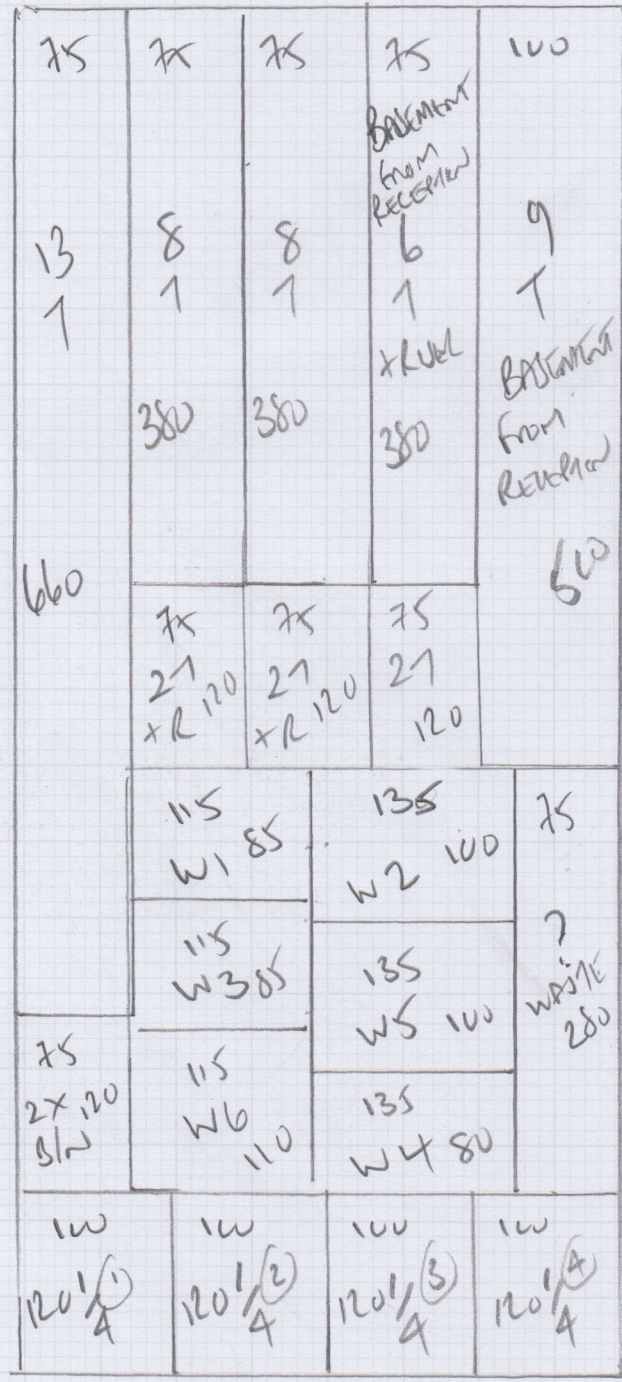 75
13
1
660
75
8
1
380
75
8
1
380
75
BASEMENT
FROM
RECEPTION
6
1
+RUER
380
100
9
1
BASEMENT
FROM
RECEPTION
75
21
+R 120
75
21
+R 120
75
21
120
115
W1 85
135
W2 100
75
?
WASTE
280
115
W3 85
135
W5 100
75
2X 120
B/W
115
W6
110
135
W4 80
100
120 1/4 1
100
120 1/4 2
100
120 1/4 3
100
120 1/4 4